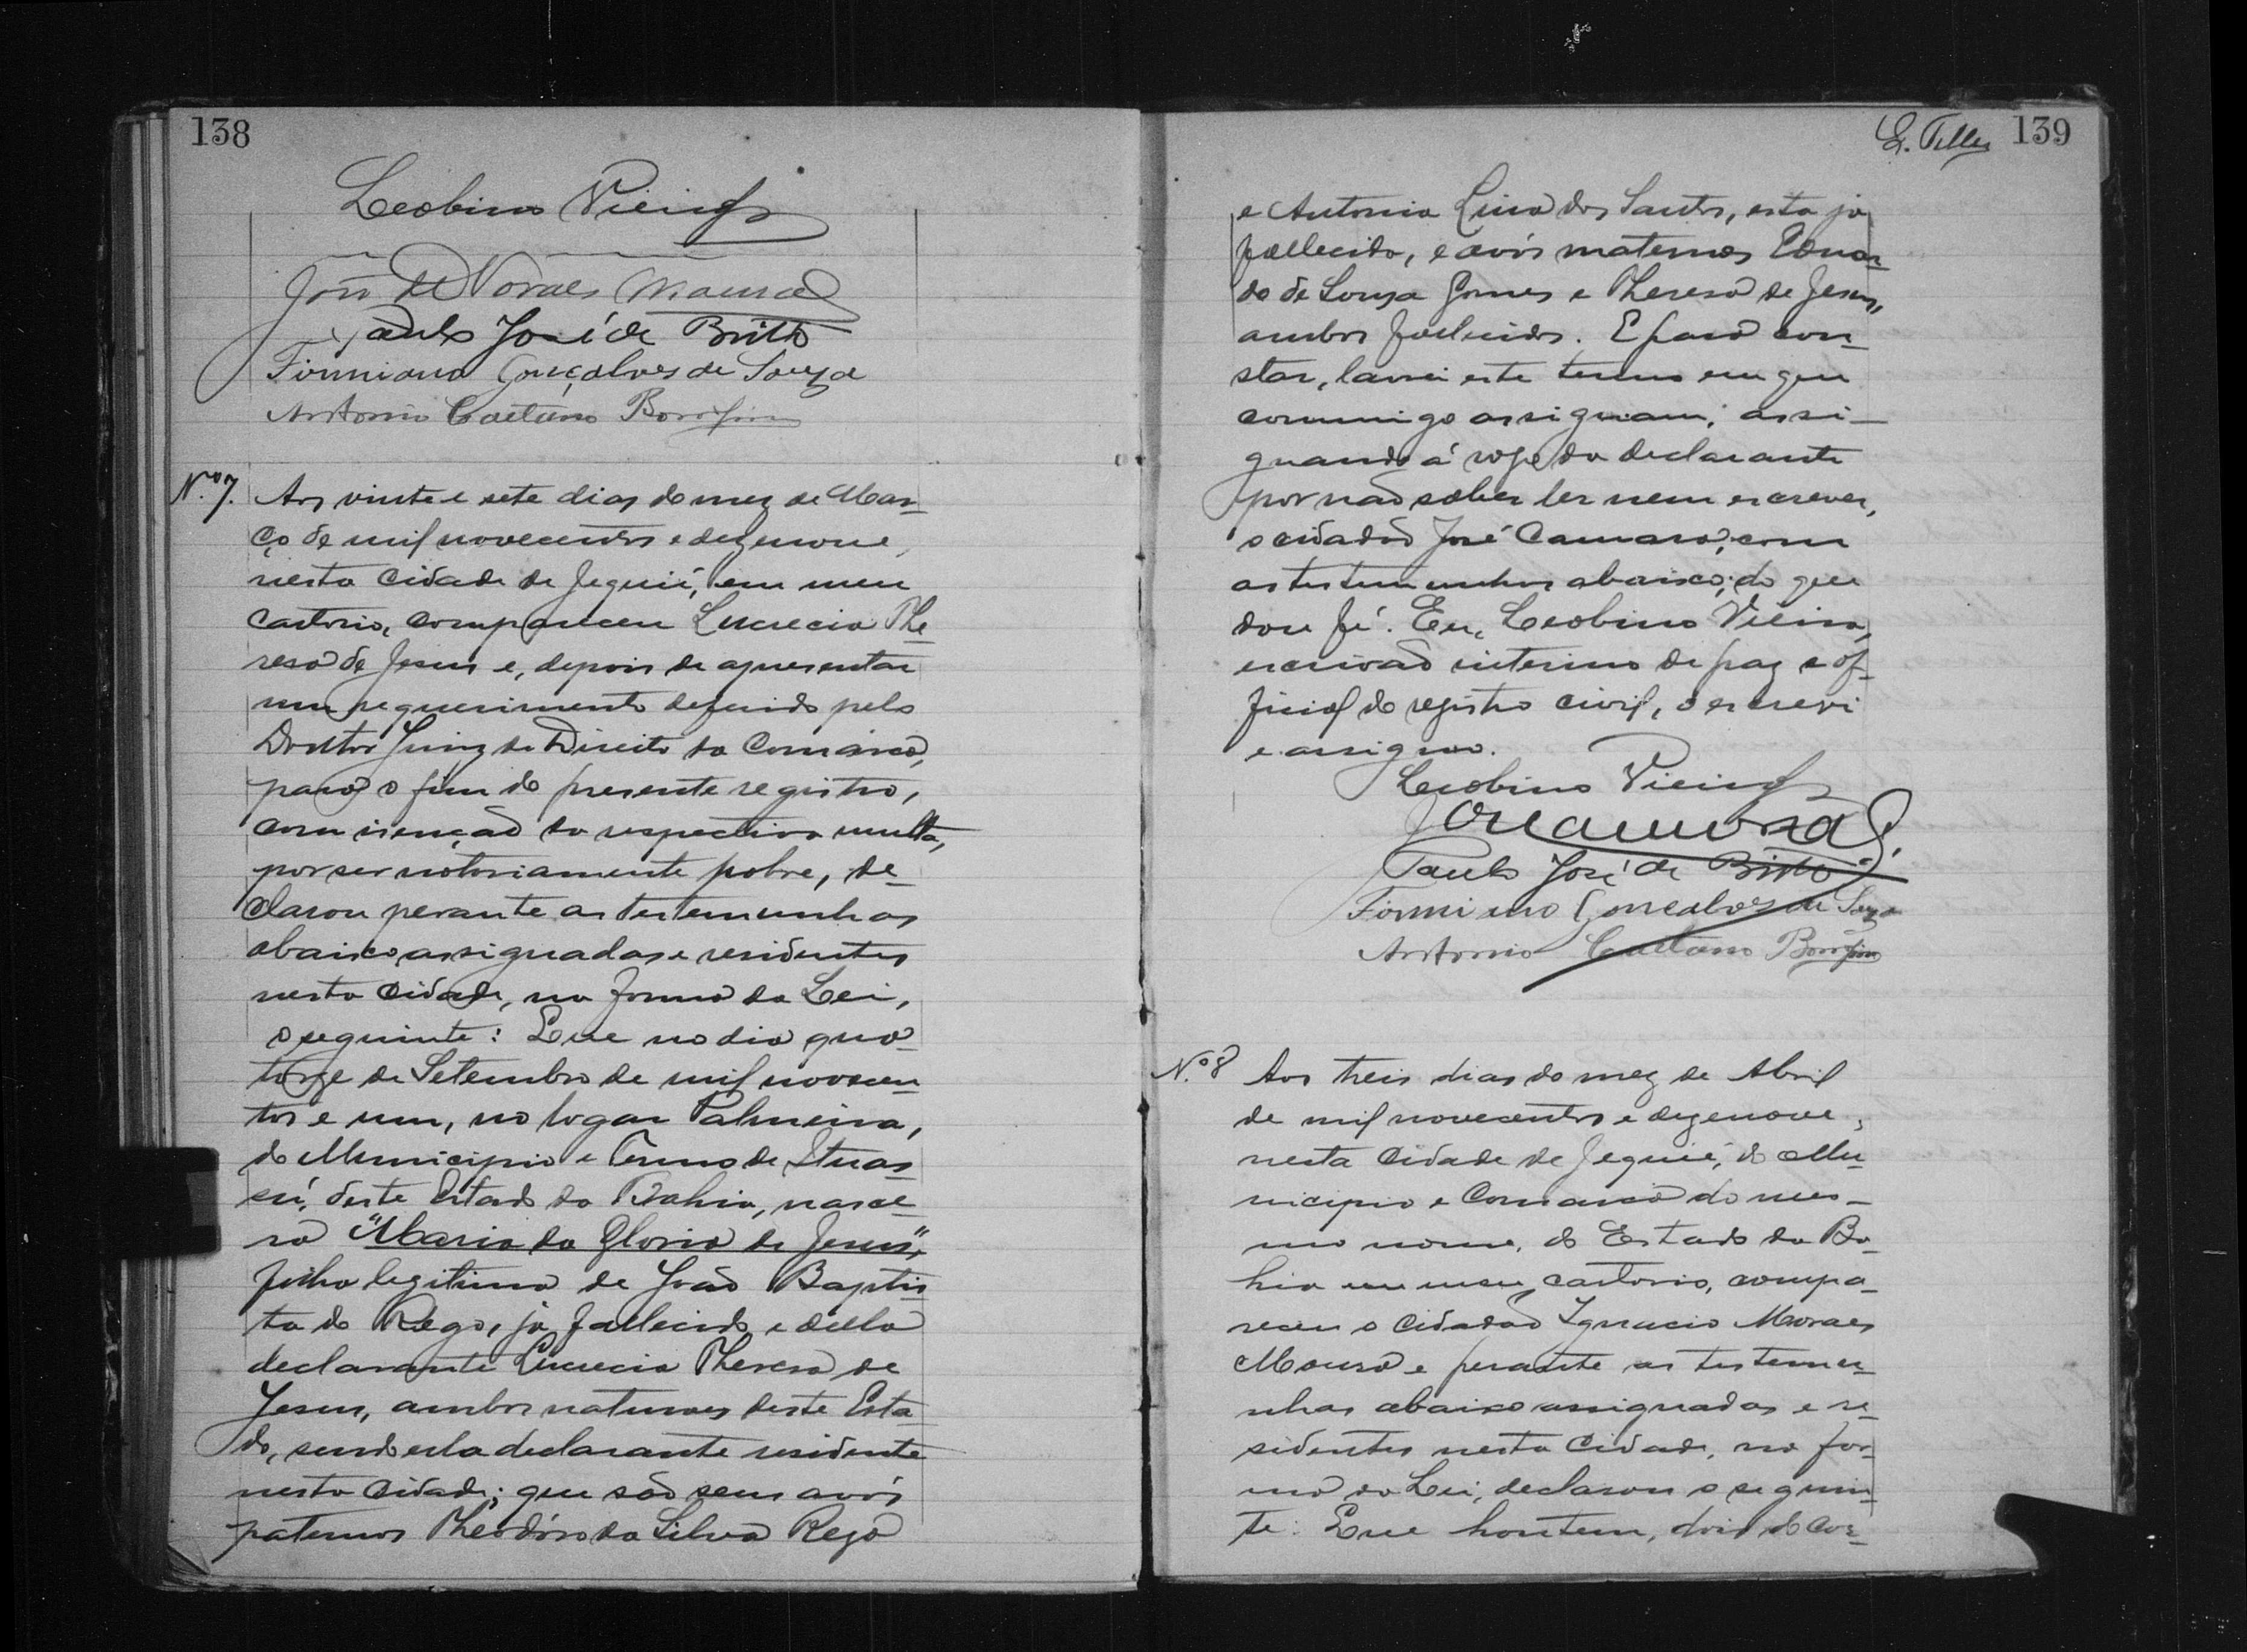 138
Leobino Vieira
João de Moraes Moura
Paulo José de Britto
Firmiano Gonçalves de Souza
Antonio Caetano Bomfim
N.º 7. Aos vinte e sete dias do mez de Mar-
ço de mil novecentos e dezenove,
nesta Cidade de Jequié, em meu
Cartorio, compareceu Lucrecia The-
resa de Jesus e, depois de apresentar
um requerimento deferido pelo
Doutor Juiz de Direito da Comarca,
para o fim do presente registro,
com isenção da respectiva multa,
por ser notoriamente pobre, de-
clarou perante as testemunhas
abaixo assignadas e residentes
nesta Cidade, na forma da Lei,
o seguinte: Que no dia qua-
torze de Setembro de mil novecen-
tos e um, no logar Palmeira,
do Municipio e Termo de Ituas-
sú, deste Estado da Bahia, nasce-
ra "Maria da Gloria de Jesus",
filha legitima de João Baptis-
ta do Rego, já fallecido e della
declarante Lucrecia Theresa de
Jesus, ambos naturaes deste Esta-
do, sendo esta declarante residente
nesta Cidade; que são seus avós
paternos Theodóro da Silva Rego
E. Telles 139
e Antonia Lina dos Santos, esta já
fallecida, e avós maternos Eduar-
do de Souza Gomes e Theresa de Jesus,
ambos fallecidos. E para con-
star, lavrei este termo em que
commigo assignam, assi-
gnando á rogo da declarante
por não saber ler nem escrever,
o cidadão José Camara, com
as testemunhas abaixo; do que
dou fé. Eu, Leobino Vieira,
escrivão interino de paz e of-
ficial do registro civil, o escrevi
e assigno.
Leobino Vieira
Paulo José de Britto
Firmiano Gonçalves de Souza
Antonio Caetano Bomfim
N.º 8 Aos treis dias do mez de Abril
de mil novecentos e dezenove,
nesta Cidade de Jequié, do Mu-
nicipio e Comarca do mes-
mo nome, do Estado da Ba-
hia em meu cartorio, compa-
receu o cidadão Ignacio Moraes
Moura e perante as testemu-
nhas abaixo assignadas e re-
sidentes nesta Cidade, na for-
ma da Lei, declarou o seguin-
te: Que hontem, dois do cor-